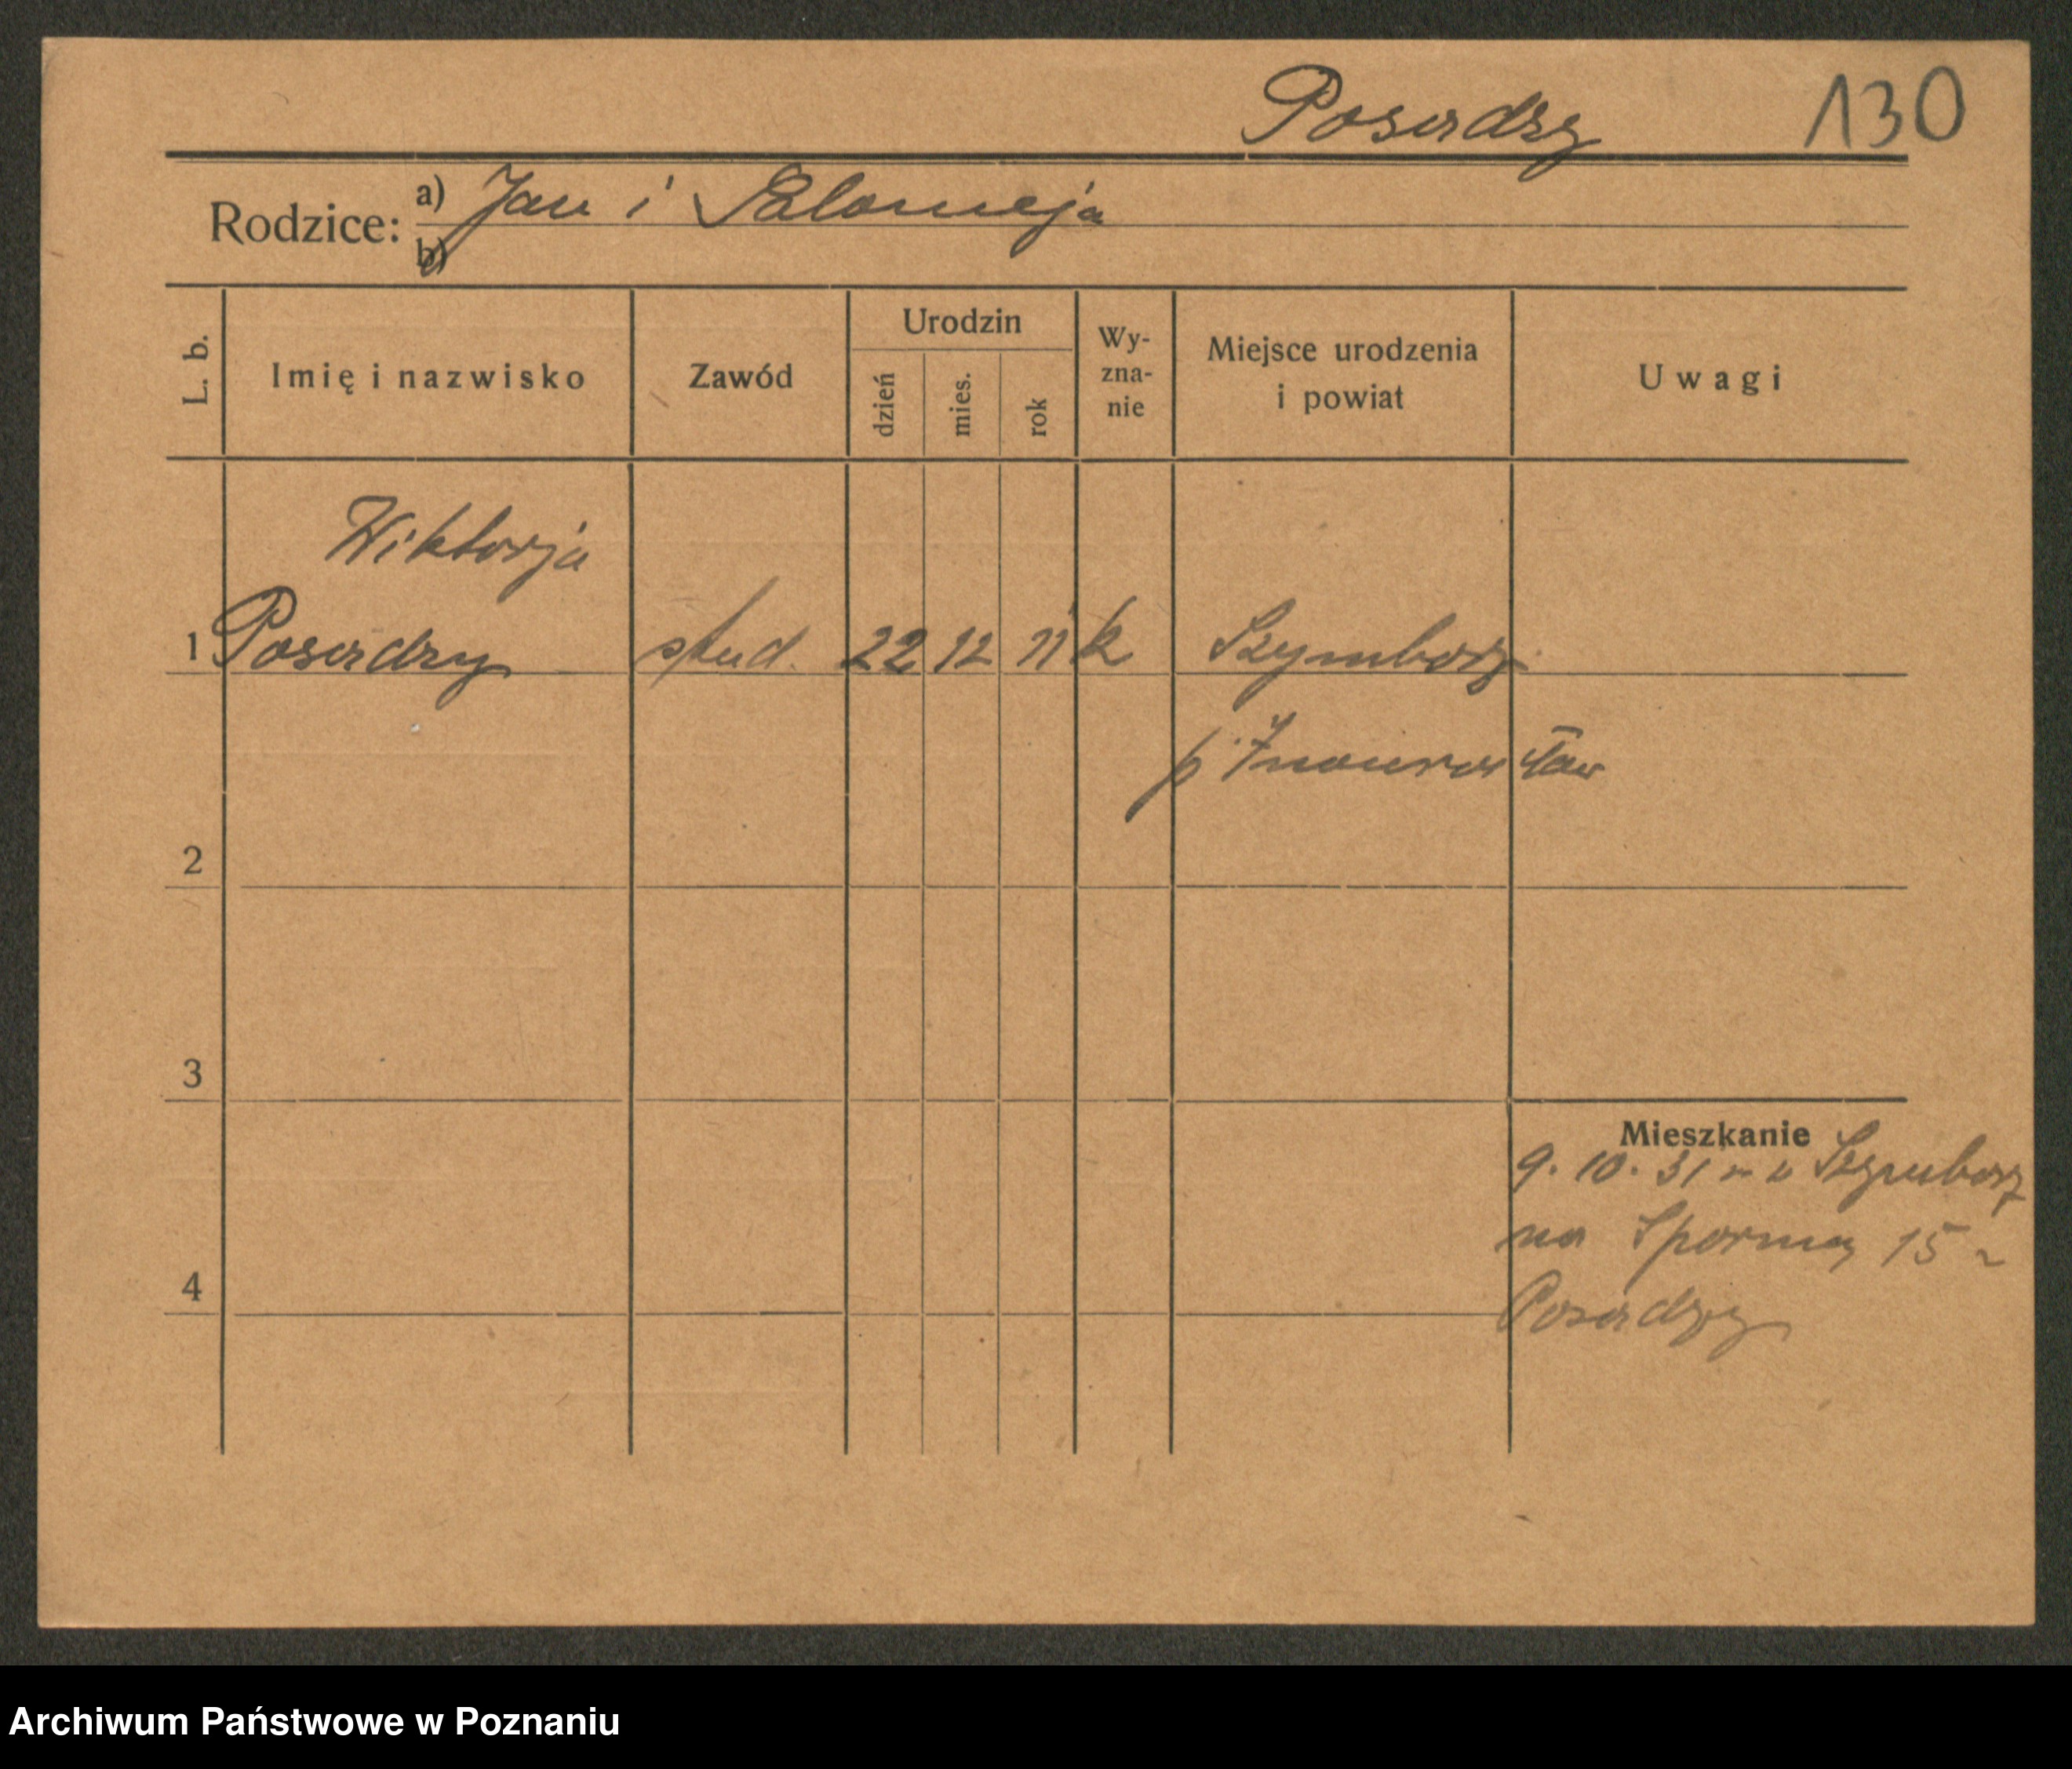 Posadzy 130
Rodzice: a) Jan i Salomeja
b)
L. b. Imię i nazwisko Zawód Urodzin dzień mies. rok Wy-zna-nie Miejsce urodzenia i powiat Uwagi
Wiktorja
1 Posadzy stud. 22 12 11 k Szymborz
p. Inowrocław
2
3
Mieszkanie
9. 10. 31 z Szymborz
na 15
4
Posadzy
Archiwum Państwowe w Poznaniu